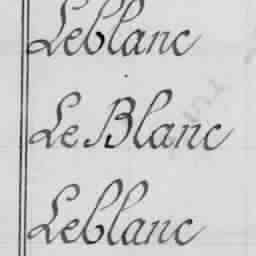 Leblanc
Le Blanc
Leblanc